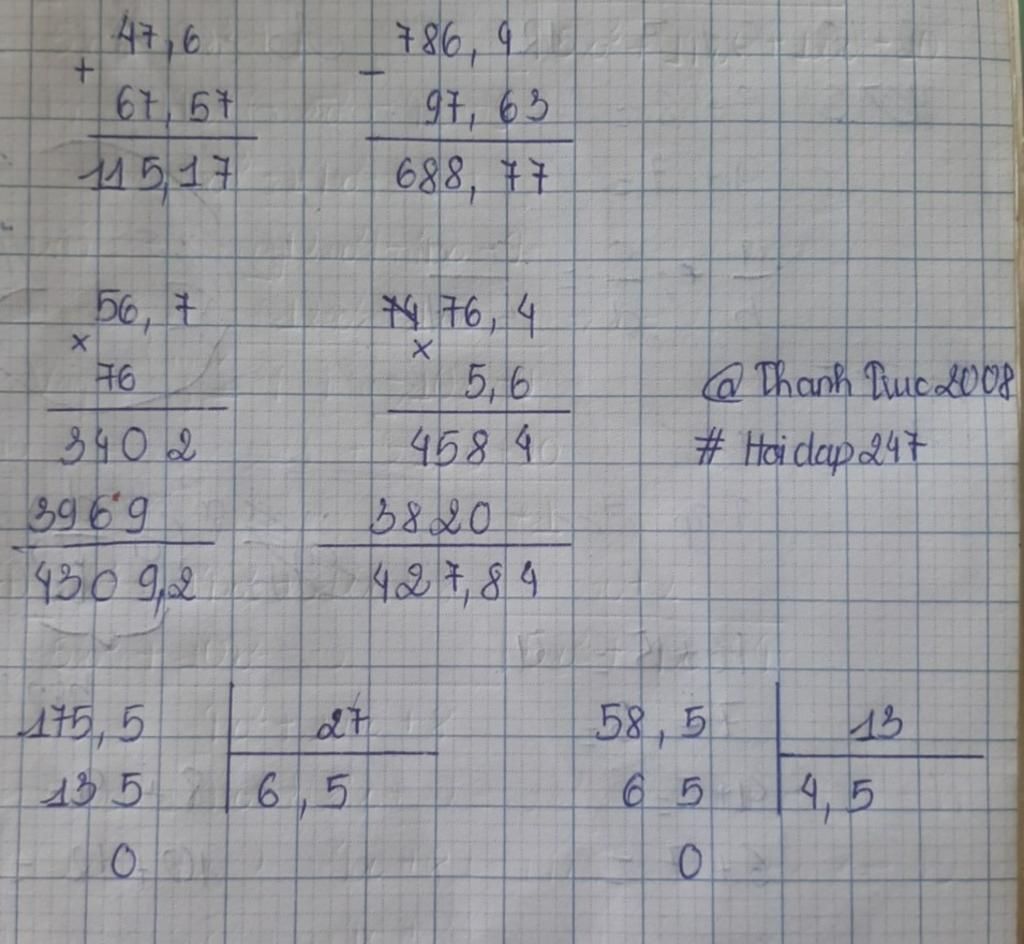 47,6
+
67,57
115,17
786,4
-
97,63
688,77
56,7
x
76
3402
3969
4309,2
76,4
x
5,6
4584
3820
427,84
@ Thanh Truc 2008
# Hoidap 247
175,5 27
135 6,5
0
58,5 13
65 4,5
0